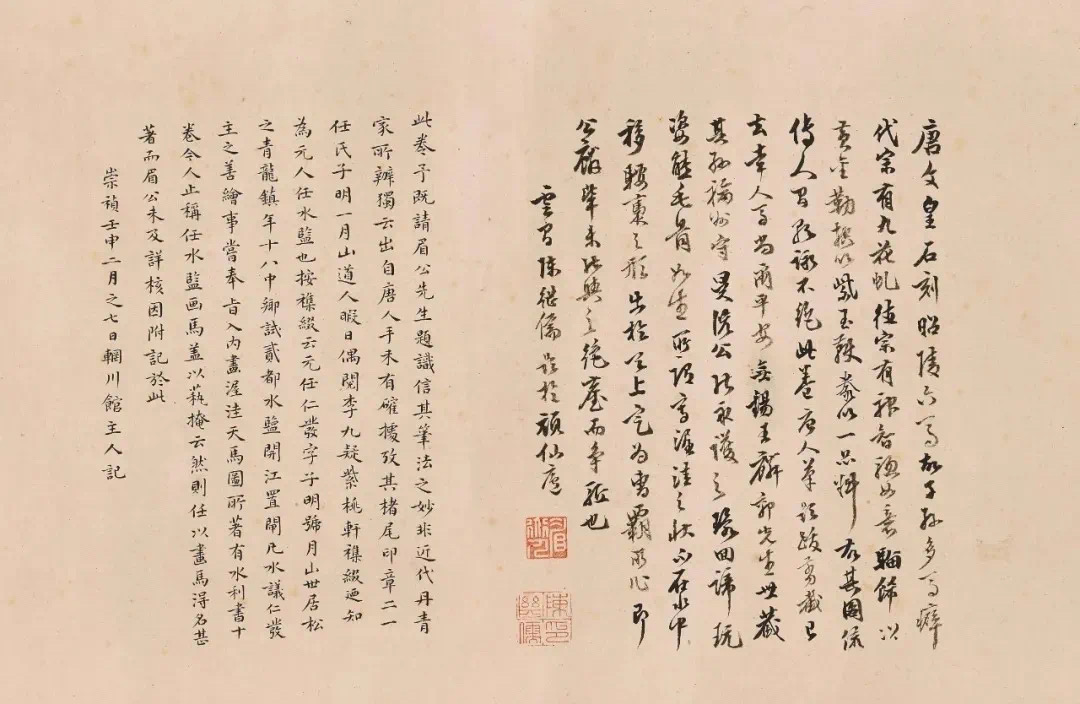 唐文皇石刻昭陵六馬故子孫多馬癖
代宗有九花虬德宗有神智驄如意騮飾以
黃金勒控以紫玉鞭豢以一品料故其圖流
傳人間歌詠不絕此卷唐人筆題跋剪截已
去幸人馬尚爾平安無錫王麟郭先生世藏
其孫福州守昊濱公能永護之珍回諦玩
姿態毛骨如生所謂寫渥洼之狀而在水中
移騕褭之形出於天上定為曹霸所作即
公麟輩未能與之絕塵而爭驅也
雲間陳繼儒題於頑仙廬
陳印繼儒
此卷予既請眉公先生題識信其筆法之妙非近代丹青
家所辨獨云出自唐人手未有確據攷其楮尾印章二一
任氏子明一月山道人暇日偶閱李九疑紫桃軒襍綴廼知
為元人任水監也按襍綴云元任仁發字子明號月山世居松
之青龍鎮年十八中鄉試貳都水監開江置閘凡水議仁發
主之善繪事嘗奉旨入內畫渥洼天馬圖所著有水利書十
卷今人止稱任水監画馬盖以萟掩云然則任以畫馬得名甚
著而眉公未及詳核因附記於此
崇禎壬申二月之七日輞川館主人記